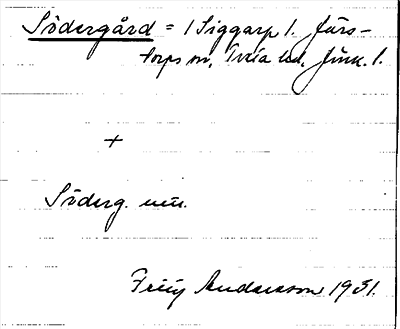 Södergård = 1 Siggarp 1. Järs-
torps sn, Tveta hd, Jönk. l.
+
Söderg.
Andersson 1931.